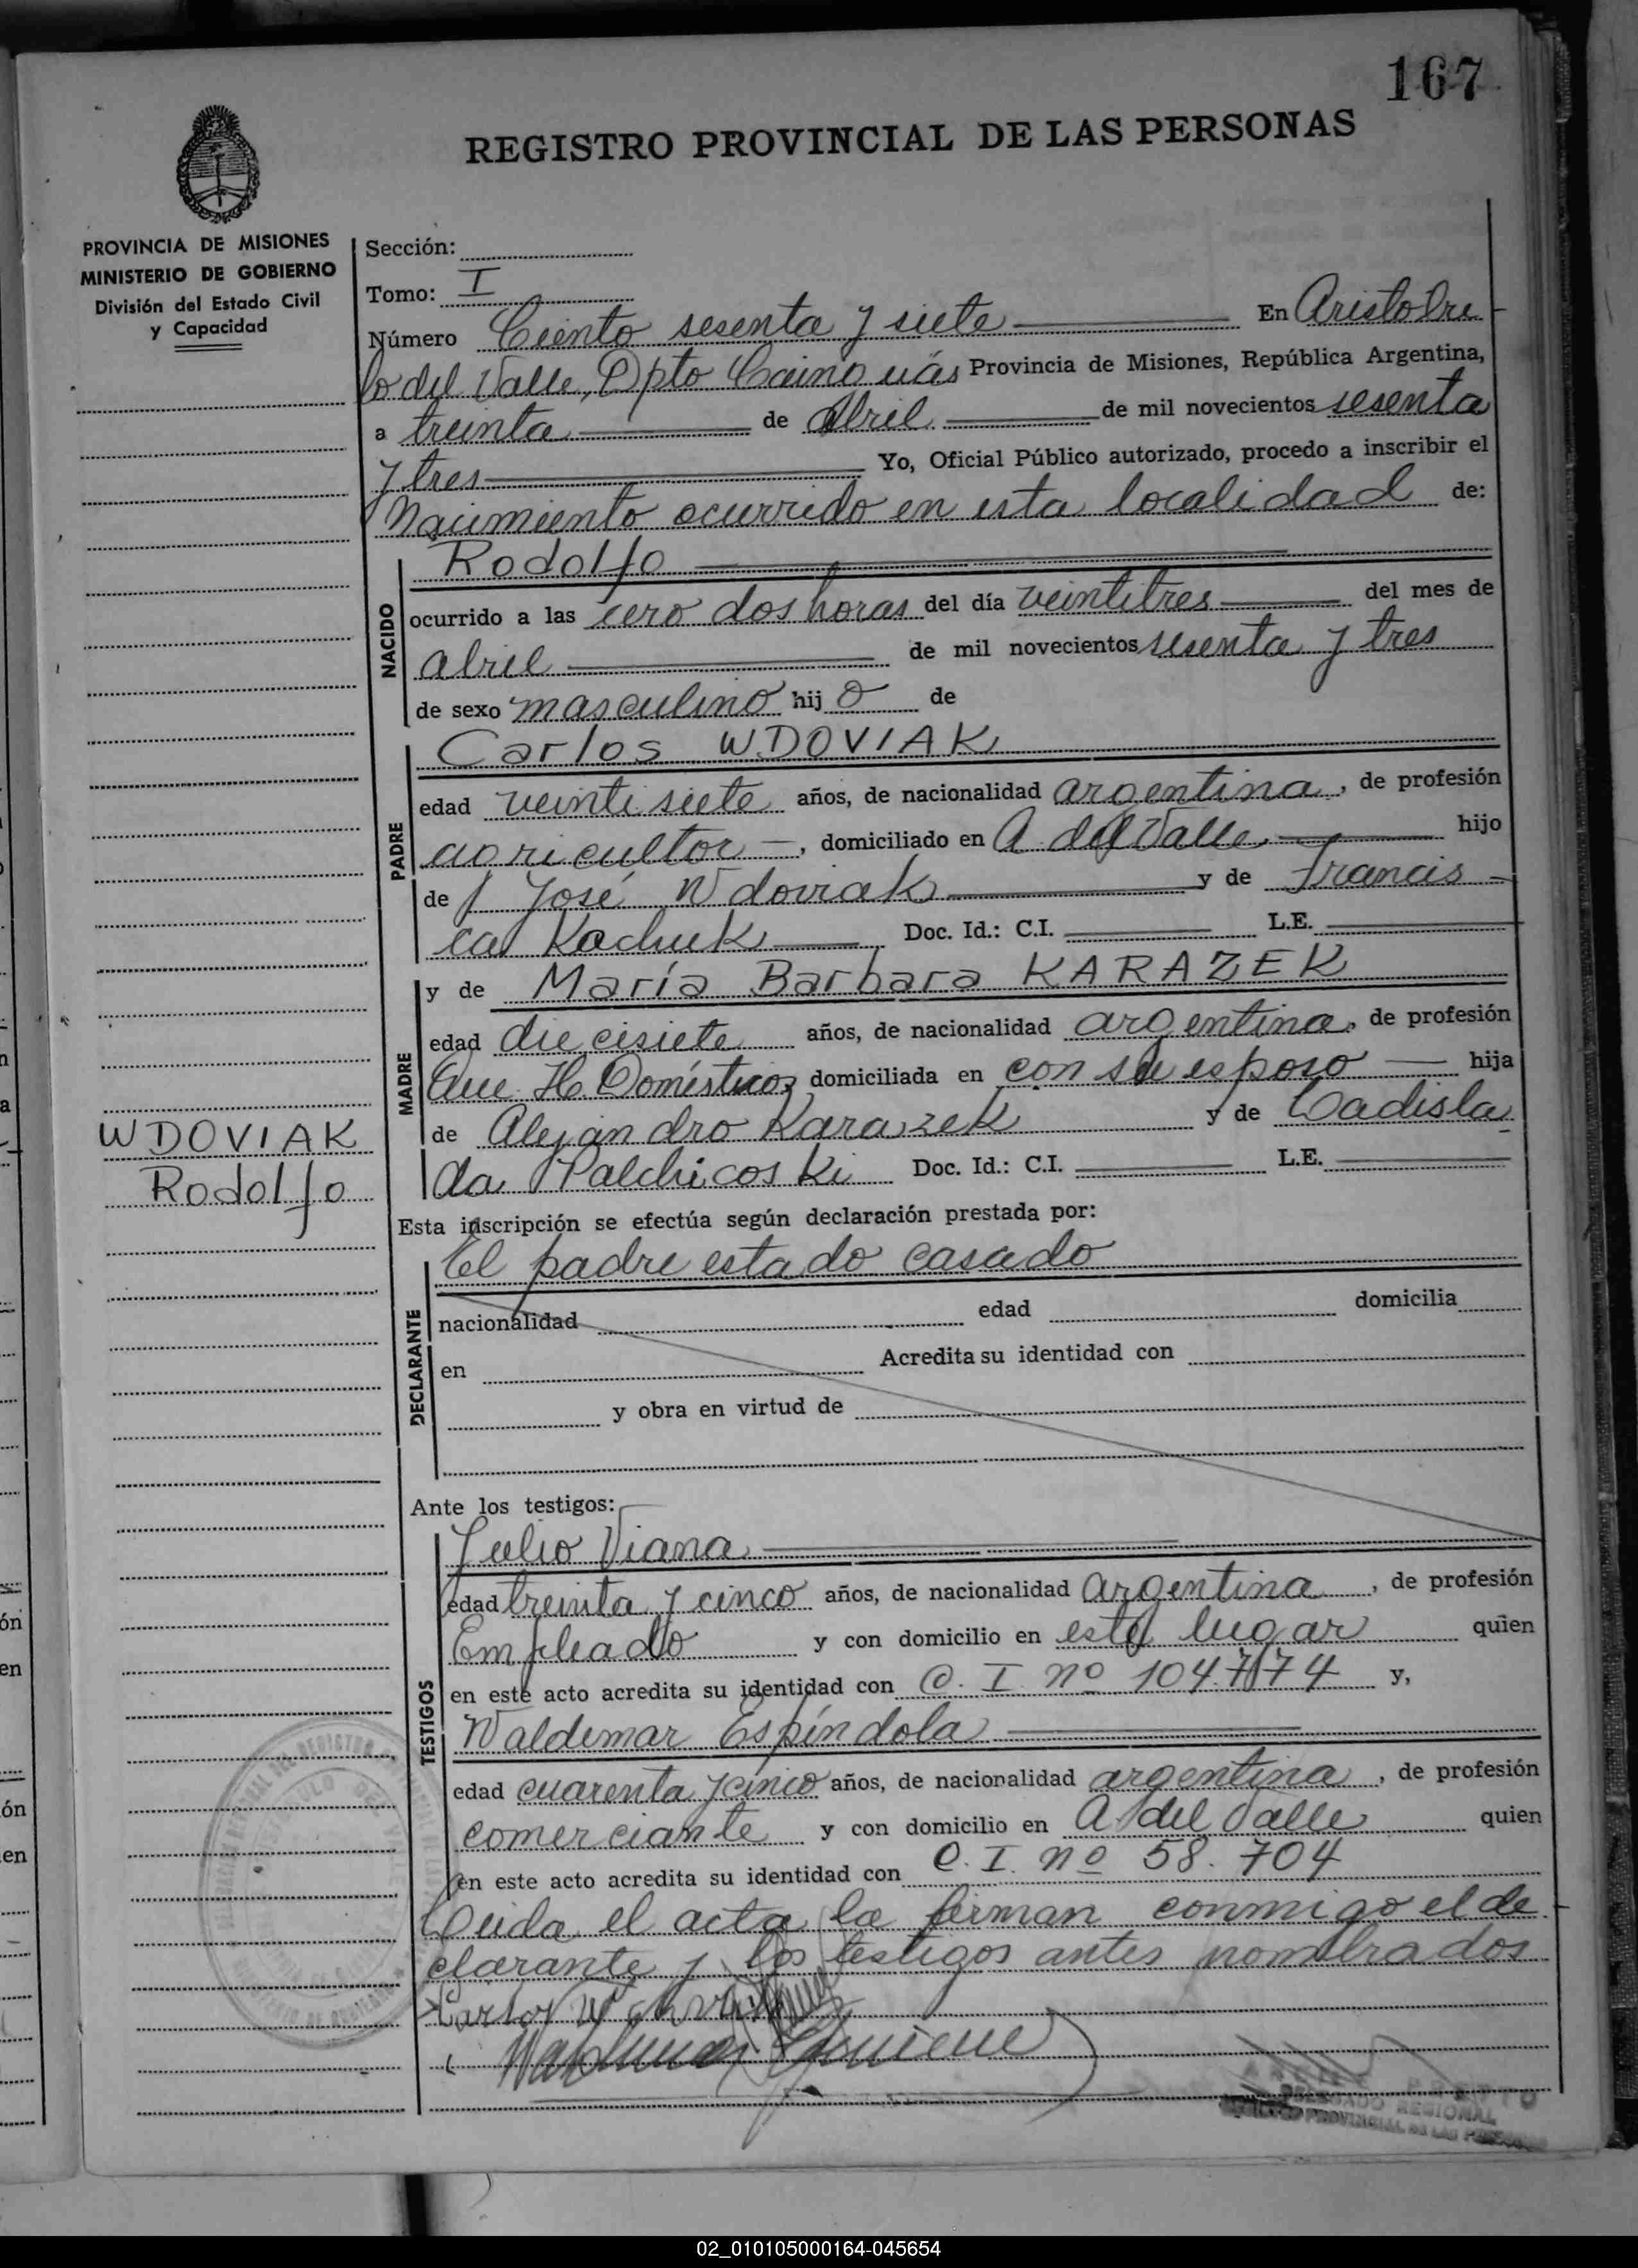 167
REGISTRO PROVINCIAL DE LAS PERSONAS
PROVINCIA DE MISIONES
MINISTERIO DE GOBIERNO
División del Estado Civil
y Capacidad
Sección:
Tomo: I
Número Ciento sesenta y siete En Aristobu
lo del Valle, Dpto Cainguás Provincia de Misiones, República Argentina,
a treinta de Abril de mil novecientos sesenta
y tres Yo, Oficial Público autorizado, procedo a inscribir el
Nacimiento ocurrido en esta localidad de:
NACIDO
Rodolfo
ocurrido a las cero dos horas del día veintitres del mes de
abril de mil novecientos sesenta y tres
de sexo masculino hij o de
PADRE
Carlos WDOVIAK
edad veintisiete años, de nacionalidad argentina, de profesión
agricultor, domiciliado en A. del Valle hijo
de José Wdoviak y de Francis
ca Kachuk Doc. Id.: C.I. L.E.
MADRE
y de María Barbara KARAZEK
edad diecisiete años, de nacionalidad argentina, de profesión
Que. H. Domésticos, domiciliada en con su esposo hija
de Alejandro Karazek y de Ladisla
da Palchicoski Doc. Id.: C.I. L.E.
WDOVIAK
Rodolfo
Esta inscripción se efectúa según declaración prestada por:
DECLARANTE
El padre estado casado
nacionalidad edad domicilia
en Acredita su identidad con
y obra en virtud de
Ante los testigos:
TESTIGOS
Julio Viana
edad treinta y cinco años, de nacionalidad argentina, de profesión
Empleado y con domicilio en este lugar quien
en este acto acredita su identidad con C. I. nº 104.774 y,
Waldemar Espíndola
edad cuarenta y cinco años, de nacionalidad argentina, de profesión
comerciante y con domicilio en A del Valle quien
en este acto acredita su identidad con C. I. nº 58.704
Leida el acta la firman conmigo el de
clarante y los testigos antes nombrados
Carlos
DELEGADO REGIONAL
REGISTRO PROVINCIAL DE LAS PERSONAS
02_010105000164-045654